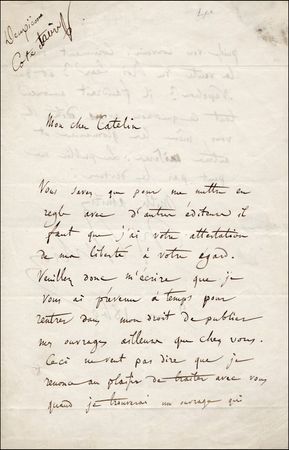 Deuxième
Cote
Mon cher Catelin
Vous savez que pour me mettre en
règle avec d'autres éditeurs il
faut que j'ai votre attestation
de ma liberté à votre égard.
Veuillez donc m'écrire que je
vous ai prévenu à temps pour
rentrer dans mon droit de publier
mes ouvrages ailleurs que chez vous.
Ceci ne veut pas dire que je
renonce au plaisir de traiter avec vous
quand je trouverai un ouvrage qui